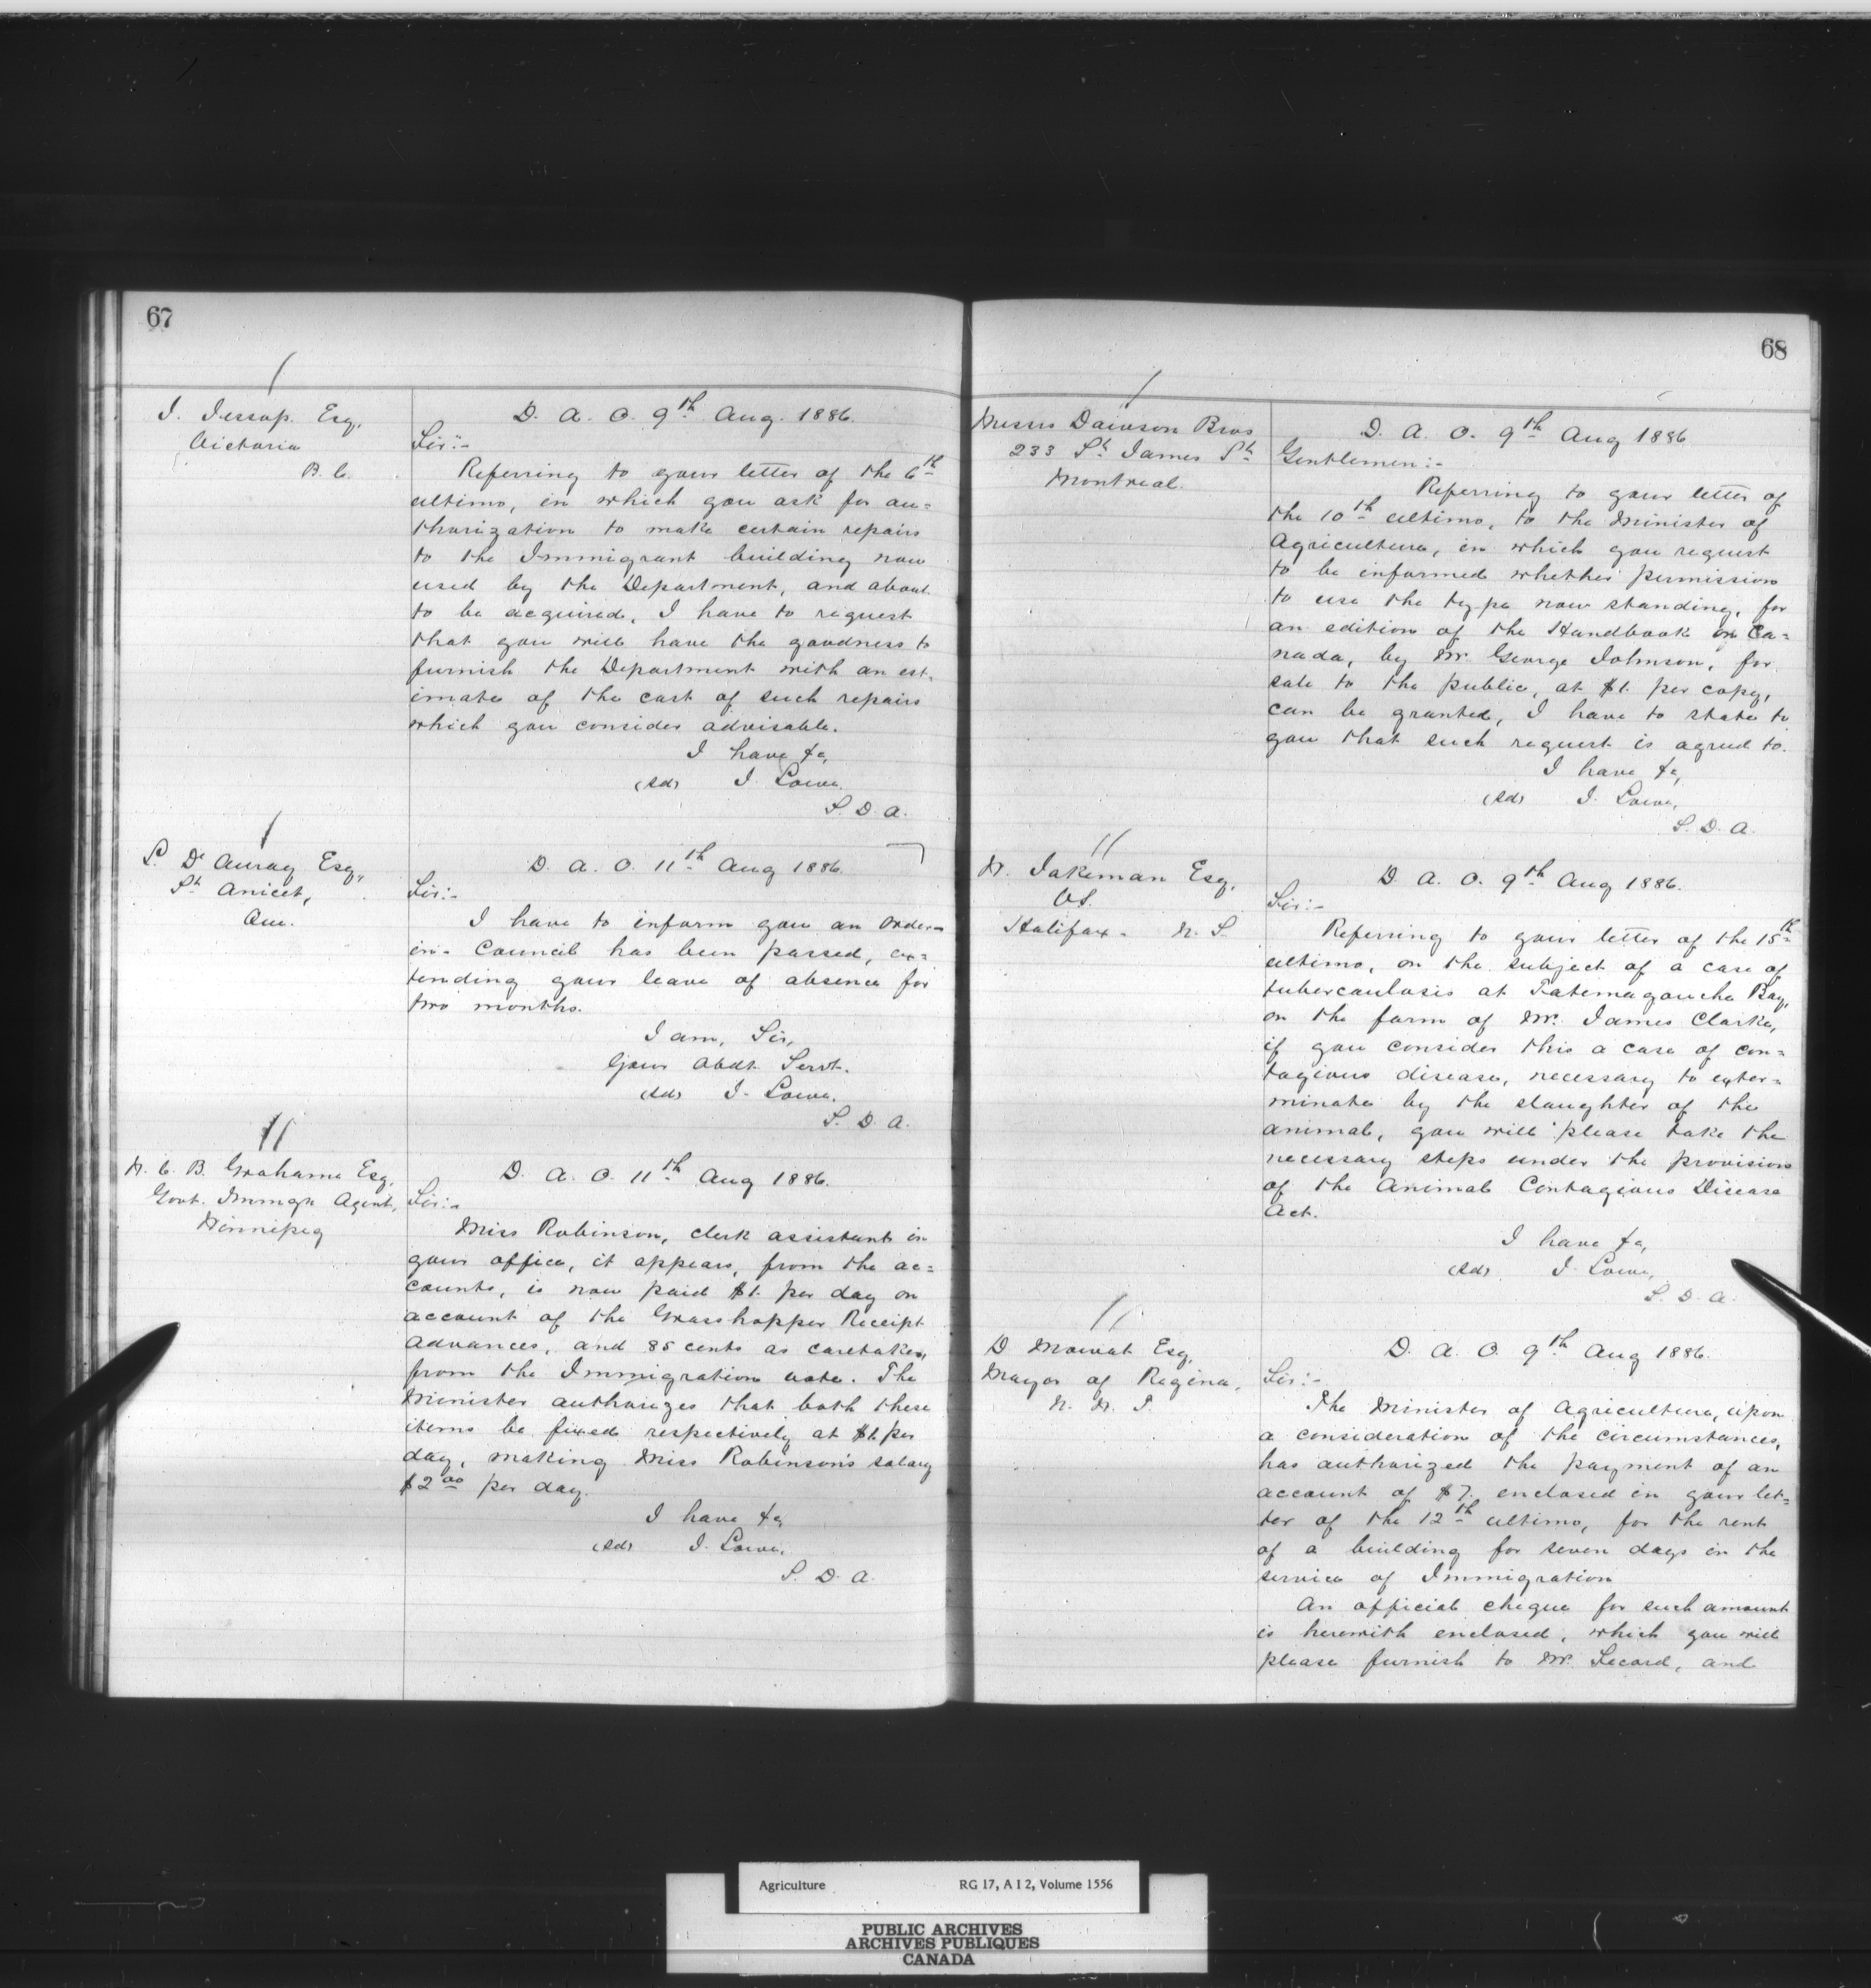 67
J. Jessop. Esq,
Victoria
B. C.
D. A. O. 9th Aug. 1886.
Sir:-
Referring to your letter of the 6th
ultimo, in which you ask for au=
thorization to make certain repairs
to the Immigrant building now
used by the Department, and about
to be acquired, I have to request
that you will have the goodness to
furnish the Department with an est-
imate of the cost of such repairs
which you consider advisable.
I have &c,
(sd) J. Lowe.
S. D. A.
St Anicet,
Que.
D. A. O. 11th Aug 1886.
Sir:-
I have to inform you an Order-
in- Council has been passed, ex=
tending your leave of absence for
two months.
I am, Sir,
Your Obdt Servt.
(sd) J. Lowe.
S. D. A.
W. C. B. Grahame Esq,
Govt. Immgn Agent,
Winnipeg
D. A. O. 11th Aug 1886.
Sir:-
Miss Robinson, clerk assistant in
your office, it appears, from the ac=
counts, is now paid $1. per day on
account of the Grasshopper Receipt
Advances, and 85 cents as caretaker,
from the Immigration vote. The
Minister authorizes that both these
items be fixed respectively at $1. per
day, making Miss Robinson's salary
$2.00 per day.
I have &c,
(sd) J. Lowe.
S. D. A.
68
Messrs Dawson Bros
233 St James St
Montreal.
D. A. O. 9th Aug 1886.
Gentlemen:-
Referring to your letter of
the 10th ultimo, to the Minister of
Agriculture, in which you request
to be informed whether permission
to use the type now standing, for
an edition of the Handbook on Ca=
nada, by Mr. George Johnson, for
sale to the public, at $1. per copy,
can be granted, I have to state to
you that such request is agreed to.
I have &c,
(sd) J. Lowe,
S. D. A.
W. Jakeman Esq,
VS.
Halifax. N. S.
D. A. O. 9th Aug 1886.
Sir:-
Referring to your letter of the 15th
ultimo, on the subject of a case of
tuberculosis at Tatemagouche Bay,
on the farm of Mr. James Clarke,
if you consider this a case of con=
tagious disease, necessary to exter=
minate by the slaughter of the
animal, you will please take the
necessary steps under the provision
of the Animal Contagious Disease
Act.
I have &c,
(sd) J. Lowe,
S. D. A.
D Mowat Esq,
Mayor of Regina,
N. W. T.
D. A. O. 9th Aug 1886.
Sir:-
The Minister of Agriculture, upon
a consideration of the circumstances,
has authorized the payment of an
account of $7. enclosed in your let=
ter of the 12th ultimo, for the rent
of a building for seven days in the
service of Immigration
An official cheque for such amount
is herewith enclosed, which you will
please furnish to Mr. Secord, and
Agriculture RG 17, A I 2, Volume 1556
PUBLIC ARCHIVES
ARCHIVES PUBLIQUES
CANADA